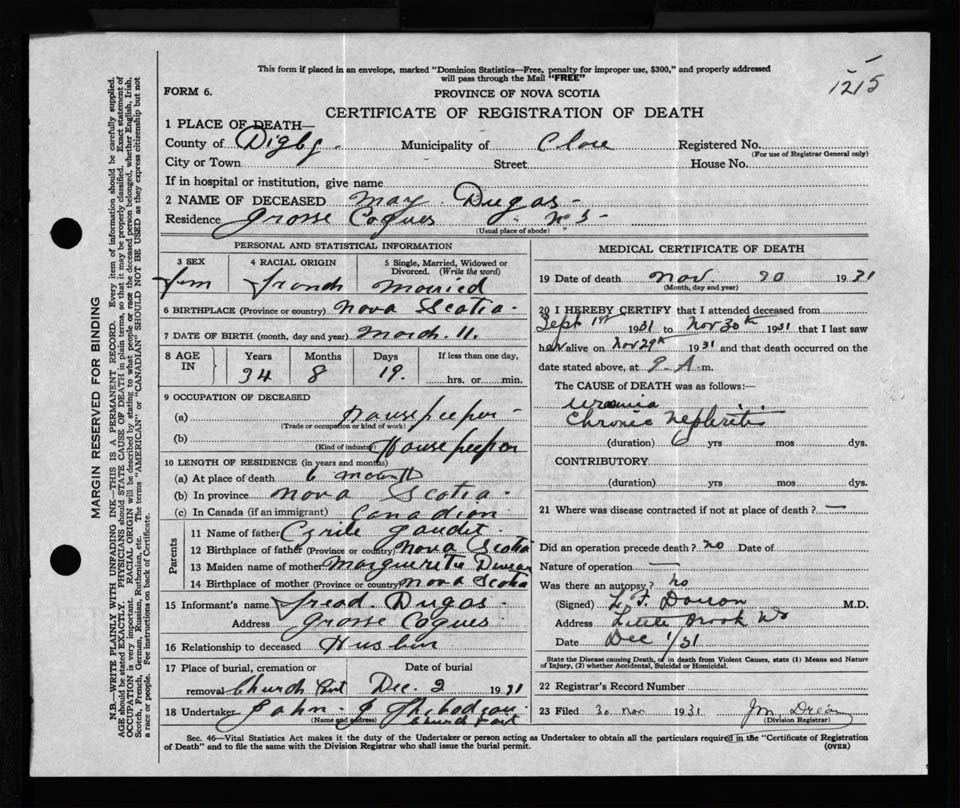 This form if placed in an envelope, marked "Dominion Statistics—Free, penalty for improper use, $300," and properly addressed
will pass through the Mail "FREE"
1215
FORM 6.
PROVINCE OF NOVA SCOTIA
CERTIFICATE OF REGISTRATION OF DEATH
1 PLACE OF DEATH—
County of Digby. Municipality of Clare Registered No.
(For use of Registrar General only)
City or Town Street House No.
If in hospital or institution, give name
2 NAME OF DECEASED May Dugas
Residence Grosse Coques N S
(Usual place of abode)
PERSONAL AND STATISTICAL INFORMATION
3 SEX 4 RACIAL ORIGIN 5 Single, Married, Widowed or Divorced. (Write the word)
Fem French Married
6 BIRTHPLACE (Province or country) Nova Scotia
7 DATE OF BIRTH (month, day and year) March 11.
8 AGE IN Years Months Days If less than one day,
34 8 19. hrs. or min.
9 OCCUPATION OF DECEASED
(a) housekeeper
(Trade or occupation or kind of work)
(b) Housekeeper
(Kind of industry)
10 LENGTH OF RESIDENCE (in years and months)
(a) At place of death 6 month
(b) In province Nova Scotia
(c) In Canada (if an immigrant) Canadian
Parents
11 Name of father Cyrile Gaudet
12 Birthplace of father (Province or country) Nova Scotia
13 Maiden name of mother Marguerite
14 Birthplace of mother (Province or country) Nova Scotia
15 Informant's name Fread. Dugas
Address Grosse Coques
16 Relationship to deceased Husben
17 Place of burial, cremation or removal Church Point Date of burial Dec. 2 1931
18 Undertaker John J Thibodeau
(Name and address) Church Point
MEDICAL CERTIFICATE OF DEATH
19 Date of death Nov. 30 1931
(Month, day and year)
20 I HEREBY CERTIFY that I attended deceased from
Sept 1st 1931 to Nov 30th 1931 that I last saw
her alive on Nov 29th 1931 and that death occurred on the
date stated above, at 9 A. m.
The CAUSE OF DEATH was as follows:—
Uremia
Chronic Nephritis
(duration) 6 yrs mos dys.
CONTRIBUTORY
(duration) yrs. mos. dys.
21 Where was disease contracted if not at place of death? —
Did an operation precede death? no Date of
Nature of operation —
Was there an autopsy? no
(Signed) L. F. M.D.
Address Little Brook NS
Date Dec 1/31
State the Disease causing Death, or in death from Violent Causes, state (1) Means and Nature
of Injury, (2) whether Accidental, Suicidal or Homicidal.
22 Registrar's Record Number
23 Filed 30 Nov 1931 J M
(Division Registrar)
Sec. 46—Vital Statistics Act makes it the duty of the Undertaker or person acting as Undertaker to obtain all the particulars required in the "Certificate of Registration
of Death" and to file the same with the Division Registrar who shall issue the burial permit. (OVER)
MARGIN RESERVED FOR BINDING
N.B.—WRITE PLAINLY WITH UNFADING INK—THIS IS A PERMANENT RECORD. Every item of information should be carefully supplied.
AGE should be stated EXACTLY. PHYSICIANS should STATE CAUSE OF DEATH in plain terms, so that it may be properly classified. Exact statement of
OCCUPATION is very important. RACIAL ORIGIN will be described by stating to what people or race the deceased person belonged, whether English, Irish,
Scotch, French, German, Russian, Ruthenian, etc. The terms "AMERICAN" or "CANADIAN" SHOULD NOT BE USED as they express citizenship but not
a race or people. Fee instructions on back of Certificate.